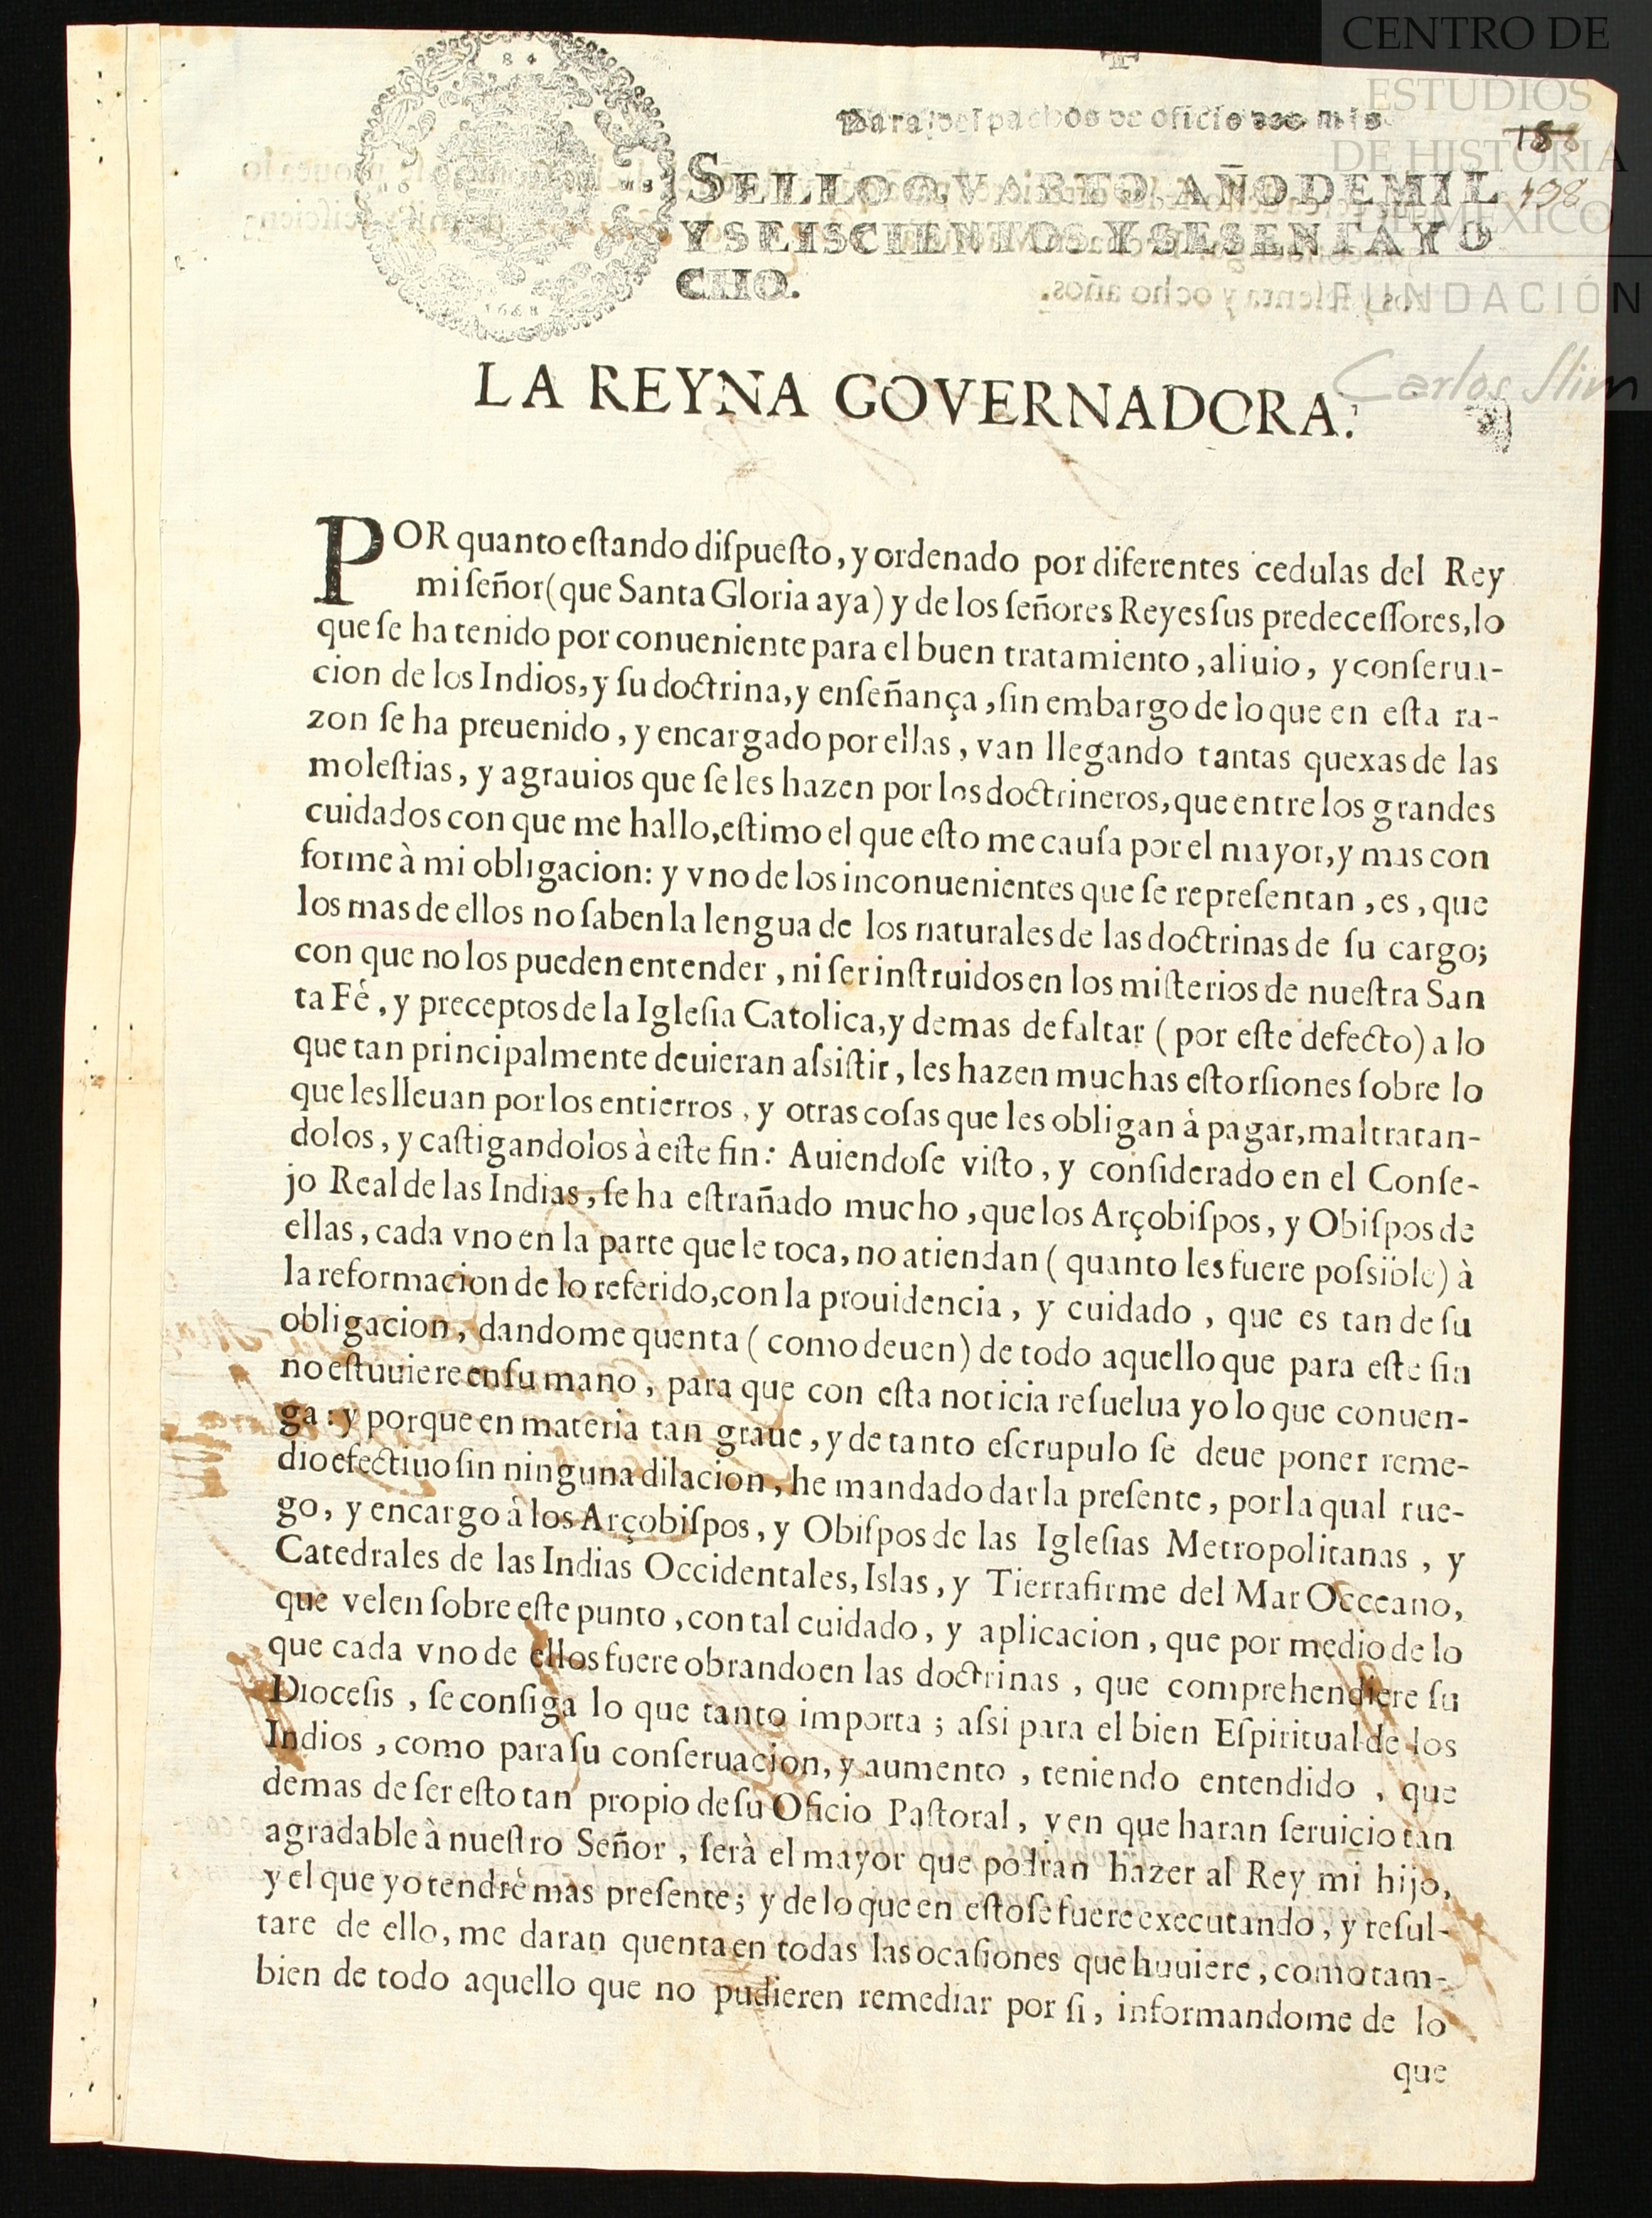 CENTRO DE
ESTUDIOS
DE HISTORIA
DE MEXICO
FUNDACIÓN
Carlos Slim
84
Para despachos de oficio dos mrs
188
198
SELLO QVARTO AÑO DE MIL
Y SEISCIENTOS Y SESENTA Y O
CHO.
1668
LA REYNA GOVERNADORA.
POR quanto eſtando diſpueſto, y ordenado por diferentes cedulas del Rey
mi ſeñor (que Santa Gloria aya) y de los ſeñores Reyes ſus predeceſſores, lo
que ſe ha tenido por conueniente para el buen tratamiento, aliuio, y conſerua-
cion de los Indios, y ſu doctrina, y enſeñança, ſin embargo de lo que en eſta ra-
zon ſe ha preuenido, y encargado por ellas, van llegando tantas quexas de las
moleſtias, y agrauios que ſe les hazen por los doctrineros, que entre los grandes
cuidados con que me hallo, eſtimo el que eſto me cauſa por el mayor, y mas con
forme à mi obligacion: y vno de los inconuenientes que ſe repreſentan, es, que
los mas de ellos no ſaben la lengua de los naturales de las doctrinas de ſu cargo;
con que no los pueden entender, ni ſer inſtruidos en los miſterios de nueſtra San
ta Fè, y preceptos de la Igleſia Catolica, y demas de faltar (por eſte defecto) a lo
que tan principalmente deuieran aſsiſtir, les hazen muchas eſtorſiones ſobre lo
que les lleuan por los entierros, y otras coſas que les obligan à pagar, maltratan-
dolos, y caſtigandolos à eſte fin: Auiendoſe viſto, y conſiderado en el Conſe-
jo Real de las Indias, ſe ha eſtrañado mucho, que los Arçobiſpos, y Obiſpos de
ellas, cada vno en la parte que le toca, no atiendan (quanto les fuere poſsible) à
la reformacion de lo referido, con la prouidencia, y cuidado, que es tan de ſu
obligacion, dandome quenta (como deuen) de todo aquello que para eſte fin
no eſtuuiere en ſu mano, para que con eſta noticia reſuelua yo lo que conuen-
ga: y porque en materia tan graue, y de tanto eſcrupulo ſe deue poner reme-
dio efectiuo ſin ninguna dilacion, he mandado dar la preſente, por la qual rue-
go, y encargo à los Arçobiſpos, y Obiſpos de las Igleſias Metropolitanas, y
Catedrales de las Indias Occidentales, Islas, y Tierrafirme del Mar Occeano,
que velen ſobre eſte punto, con tal cuidado, y aplicacion, que por medio de lo
que cada vno de ellos fuere obrando en las doctrinas, que comprehendiere ſu
Dioceſis, ſe conſiga lo que tanto importa; aſsi para el bien Eſpiritual de los
Indios, como para ſu conſeruacion, y aumento, teniendo entendido, que
demas de ſer eſto tan propio de ſu Oficio Paſtoral, y en que haran ſeruicio tan
agradable à nueſtro Señor, ſerà el mayor que podran hazer al Rey mi hijo,
y el que yo tendrè mas preſente; y de lo que en eſto ſe fuere executando, y reſul-
tare de ello, me daran quenta en todas las ocaſiones que huuiere, como tam-
bien de todo aquello que no pudieren remediar por ſi, informandome de lo
que